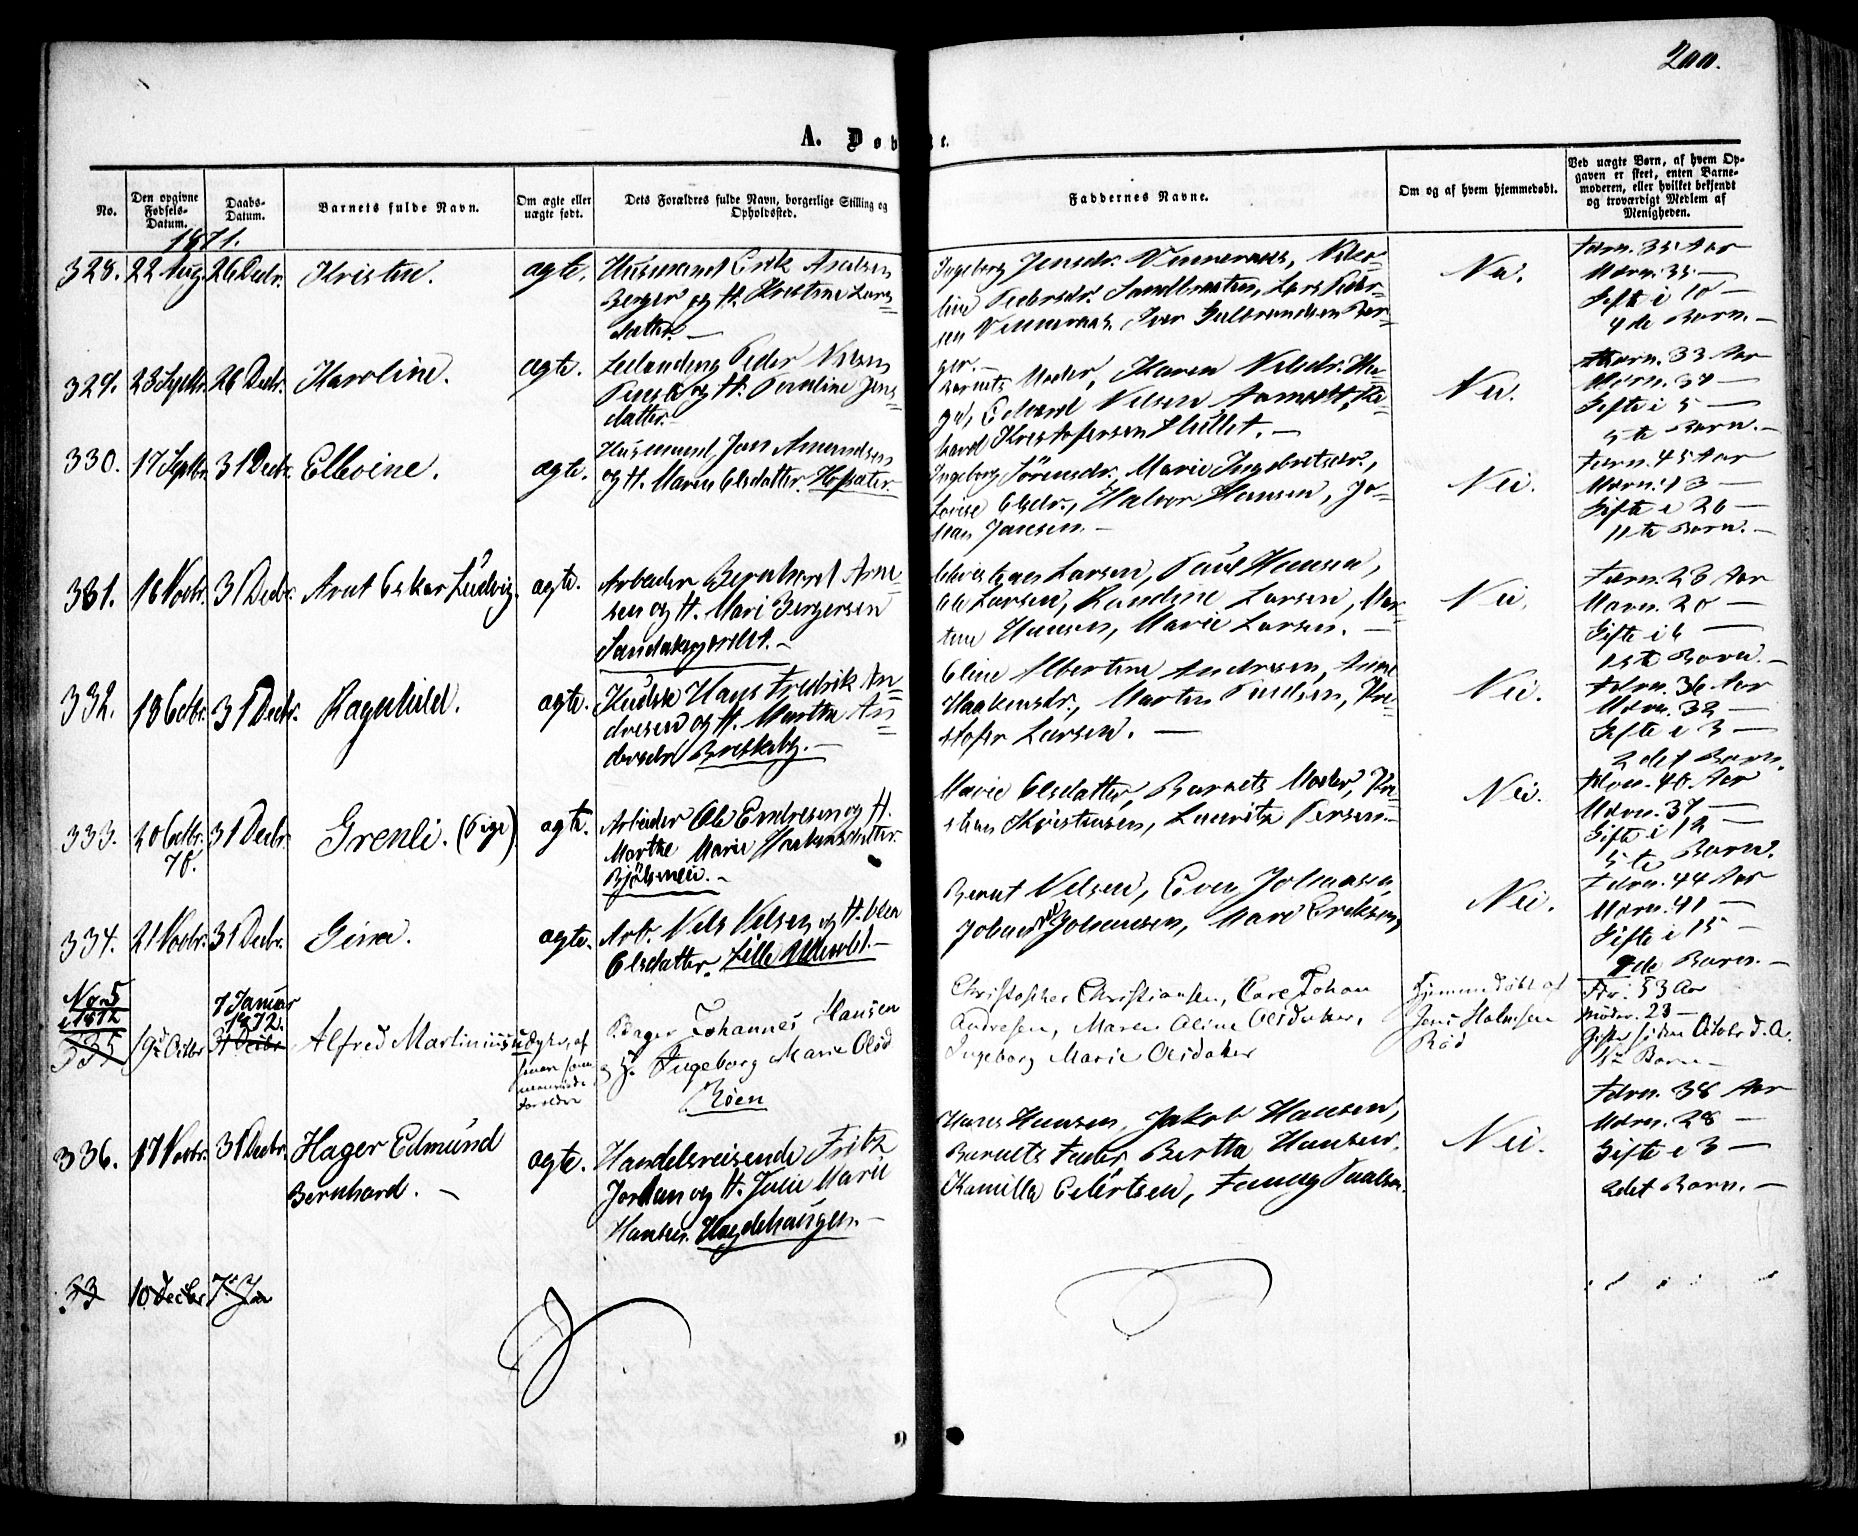 200.
A. Døbte.
No.
Den opgivne Fødsels-Datum.
Daabs-Datum.
Barnets fulde Navn.
Om ægte eller uægte født.
Dets Forældres fulde Navn, borgerlige Stilling og Opholdssted.
Faddernes Navne.
Om og af hvem hjemmedøbt.
Ved uægte Børn, af hvem Opgaven er skeet, enten Barnemoderen, eller hvilket bekjendt og troværdigt Medlem af Menigheden.
1871.
328. 22 Aug. 26 Decbr. Kristine. ægte.
Husmand Erik Axelsen
Berger og H. Kristine Lars
datter. —
Ingeborg Jensdr.
line Pedersdr. Sandbraaten, Lars Peder-
sen Iver Gulbrandsen Ber-
ger. —
Nei.
Færn. 35 Aar
Mørn. 35 —
Gifte i 10 —
4de Barn. —
329. 23 Septbr. 26 Decbr. Karoline. ægte.
Leilænding Peder Nilsen
og H. Jens-
datter.
Barnets Moder, Karen Nilsdr. Ha-
ga, Edvard Nilsen
hard Kristofersen Hullet. —
Nei.
Færn. 33 Aar
Mørn. 34 —
Gifte i 5 —
5te Barn. —
330. 17 Septbr. 31 Decbr. Ellevine. ægte.
Husmand Jan Amundsen
og H. Maren Olsdatter. Hofsæter.
Ingeborg Sörensdr., Marie Ingebretsdr.,
Lovise Olsdr., Halvor Hansen, Jo-
han Jansen. —
Nei.
Færn. 45 Aar
Mørn. 43 —
Gifte i 20 —
11te Barn. —
331. 16 Novbr. 31 Decbr. Arnt Oskar Ludvig. ægte.
Arbeider Bernhard Arne-
sen og H. Mari Bergersen
Sandakerfeldt. —
Larsen, Paul Hansen,
Ole Larsen, Randine Larsen, Mar-
tine Hansen, Marie Larsen. —
Nei.
Færn. 23 Aar
Mørn. 20 —
Gifte i 6 —
1ste Barn. —
332. 18 Octbr. 31 Decbr. Ragnhild. ægte.
Kudsk Hans Fredrik An-
dresen og H. Martha An-
dersdr. Brekkeby. —
Eline Albertine Andresen, Anne
Haakensdr., Martin Knudsen, Kri-
stofer Larsen. —
Nei.
Færn. 36 Aar
Mørn. 32 —
Gifte i 3 —
2det Barn.
333. 20 Octbr. 70. 31 Decbr. Grenli. (Pige) ægte.
Arbeider Ole Endresen og H.
Marthe Marie Haakensdatter.
Bjölsenveien. —
Marie Olsdatter, Barnets Moder, Kri-
stian Kristiansen, Lauritz Iversen —
Nei.
Færn. 40. Aar
Mørn. 37 —
Gifte i 12
5te Barn.
334. 21 Novbr. 31 Decbr. Gina. ægte.
Arb. Nils Nilsen og H. Olea
Olsdatter. Lille Ullevold. —
Bernt Nilsen, Even Johnsen,
Johan Johansen, Mari Eriksen,
Nei.
Færn. 44 Aar
Mørn. 41 —
Gifte i 15 —
9de Barn. —
No. 5
i 1872
335
19 Octbr
7 Januar
1872.
31 Decbr
Alfred Martinius
uægte, af
senere sam-
menviede
Forældre
Bager Johannes Hansen
og H. Ingeborg Marie Olsd
Röen
Christopher Christiansen, Carl Johan
Andresen, Maren Oline Olsdatter,
Ingeborg Marie Olsdatter
Hjemmedöbt af
Jens Holmsen
Röd
Fdr. 53 Aar
Moder. 23 —
Gifte siden Octobr d. A.
1st Barn —
336. 17 Novbr. 31 Decbr. Hager Edmund
Bernhard. —
ægte.
Handelsreisende Fritz
Jordan og H. Julie Marie
Hansen. Hægdehaugen. —
Hans Hansen, Jakob Hansen,
Barnets Fader, Bertha Hansen,
Kamilla Eilertsen, Fanny Paulsen.
Nei.
Færn. 38 Aar
Mørn. 28 —
Gifte i 3 —
2det Barn. —
33 10 Decbr 7 Ja